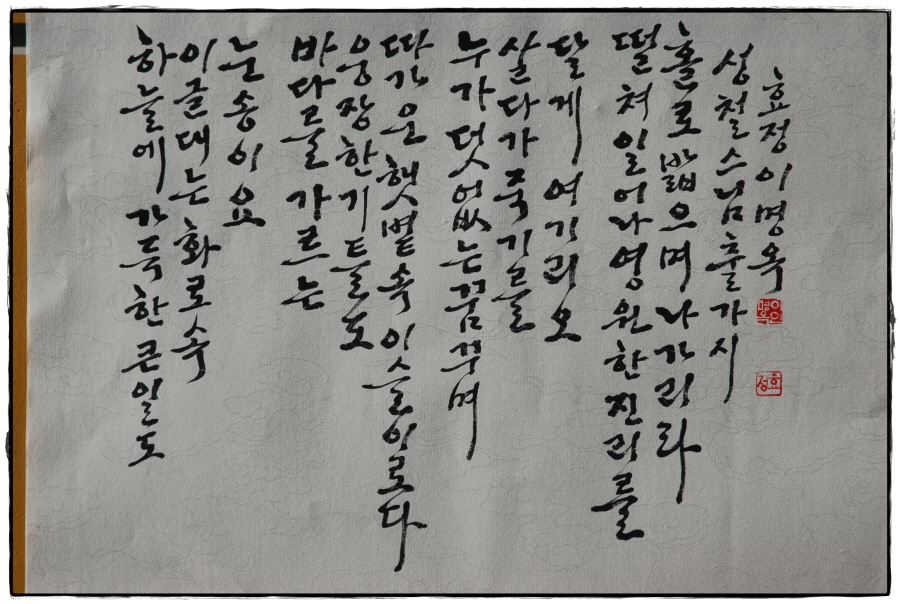 하늘에 가득한 큰일도
이글대는 화로속
눈송이요
바다를 가르는
웅장한 기틀도
따가운 햇볕속 이슬이로다
누가 덧없는 꿈꾸며
살다가 죽기를
달게 여기리오
떨쳐일어나 영원한 진리를
홀로 밟으며 나가리라
성철스님 출가시
효정 이명옥
효정